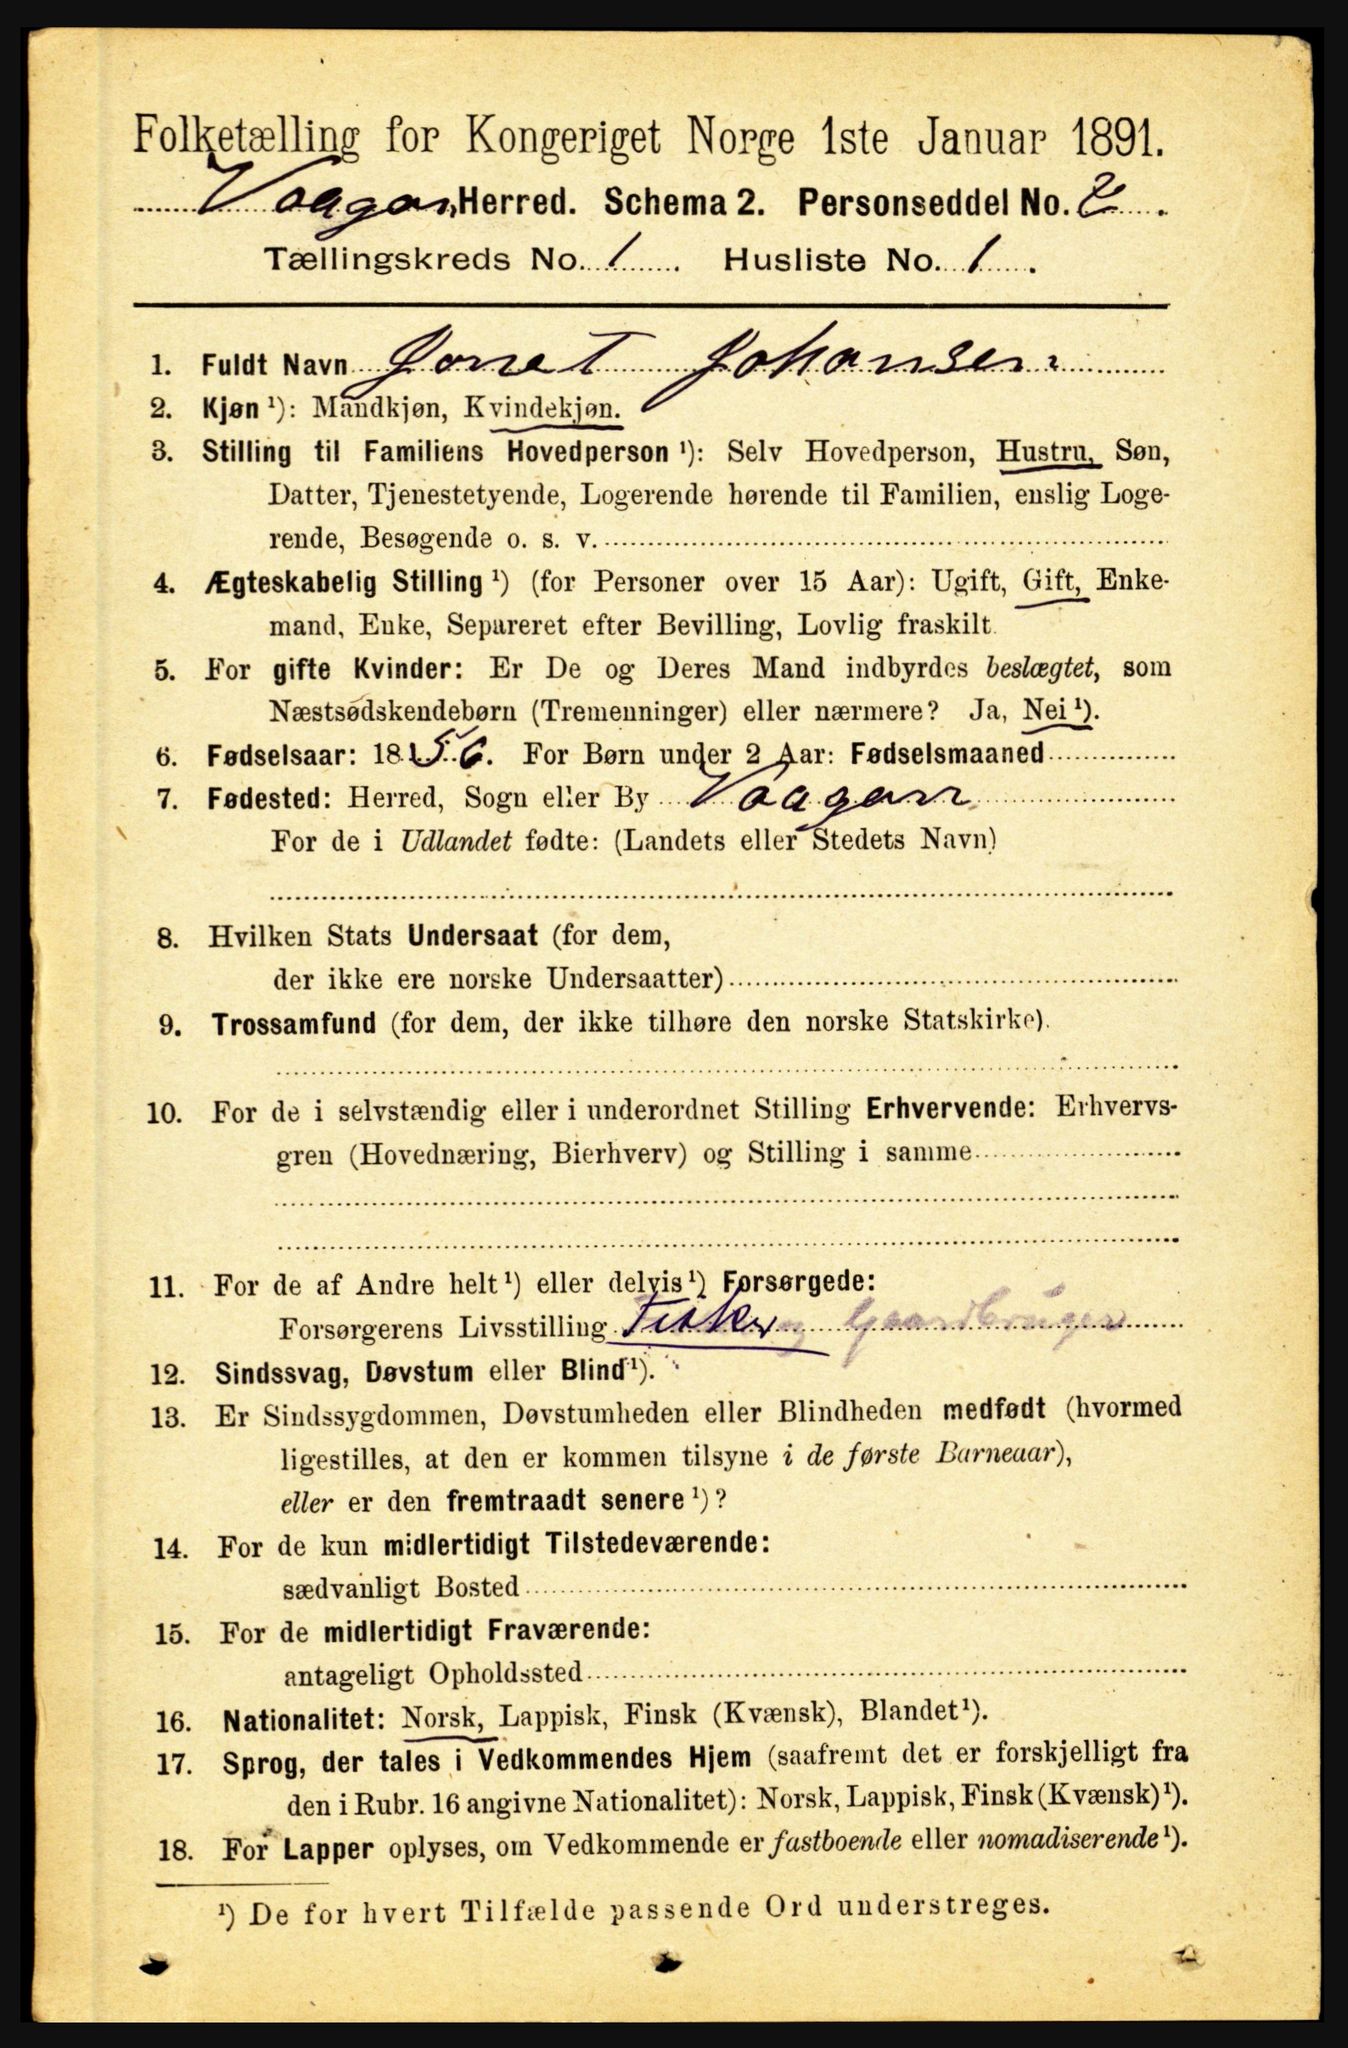 Folketælling for Kongeriget Norge 1ste Januar 1891.
Vaagan Herred. Schema 2. Personseddel No. 2.
Tællingskreds No. 1. Husliste No. 1.
1. Fuldt Navn Jonet Johansen
2. Kjøn ¹): Mandkjøn, Kvindekjøn.
3. Stilling til Familiens Hovedperson ¹): Selv Hovedperson, Hustru, Søn,
Datter, Tjenestetyende, Logerende hørende til Familien, enslig Loge-
rende, Besøgende o. s. v.
4. Ægteskabelig Stilling ¹) (for Personer over 15 Aar): Ugift, Gift, Enke-
mand, Enke, Separeret efter Bevilling, Lovlig fraskilt.
5. For gifte Kvinder: Er De og Deres Mand indbyrdes beslægtet, som
Næstsødskendebørn (Tremenninger) eller nærmere? Ja, Nei ¹).
6. Fødselsaar: 1856. For Børn under 2 Aar: Fødselsmaaned
7. Fødested: Herred, Sogn eller By Vaagan
For de i Udlandet fødte: (Landets eller Stedets Navn)
8. Hvilken Stats Undersaat (for dem,
der ikke ere norske Undersaatter)
9. Trossamfund (for dem, der ikke tilhøre den norske Statskirke).
10. For de i selvstændig eller i underordnet Stilling Erhvervende: Erhvervs-
gren (Hovednæring, Bierhverv) og Stilling i samme
11. For de af Andre helt ¹) eller delvis ¹) Forsørgede:
Forsørgerens Livsstilling Fisker og Gaardbruger
12. Sindssvag, Døvstum eller Blind ¹).
13. Er Sindssygdommen, Døvstumheden eller Blindheden medfødt (hvormed
ligestilles, at den er kommen tilsyne i de første Barneaar),
eller er den fremtraadt senere ¹)?
14. For de kun midlertidigt Tilstedeværende:
sædvanligt Bosted
15. For de midlertidigt Fraværende:
antageligt Opholdssted
16. Nationalitet: Norsk, Lappisk, Finsk (Kvænsk), Blandet ¹).
17. Sprog, der tales i Vedkommendes Hjem (saafremt det er forskjelligt fra
den i Rubr. 16 angivne Nationalitet): Norsk, Lappisk, Finsk (Kvænsk) ¹).
18. For Lapper oplyses, om Vedkommende er fastboende eller nomadiserende ¹).
¹) De for hvert Tilfælde passende Ord understreges.